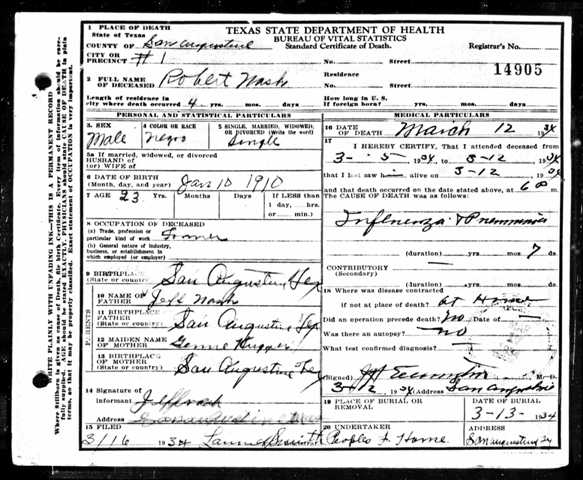 1 PLACE OF DEATH
State of Texas
TEXAS STATE DEPARTMENT OF HEALTH
BUREAU OF VITAL STATISTICS
Standard Certificate of Death.
COUNTY OF San Augustine
Registrar's No.
CITY OR PRECINCT #1
No. Street
2 FULL NAME OF DECEASED Robert Nash
Residence No. Street
14905
Length of residence in city where death occurred 4 yrs. mos. days
How long in U. S. if foreign born? yrs. mos. days
PERSONAL AND STATISTICAL PARTICULARS
3. SEX Male
4 COLOR OR RACE negro
5 SINGLE, MARRIED, WIDOWED, OR DIVORCED (Write the word) Single
5a If married, widowed, or divorced
HUSBAND OF
(or) WIFE OF
6 DATE OF BIRTH
(Month, day, and year) Jan 10 1910
7 AGE 23 Yrs. Months Days
If LESS than 1 day, hrs.
or min.
8 OCCUPATION OF DECEASED
(a) Trade, profession or particular kind of work Farmer
(b) General nature of industry, business or establishment in which employed (or employer)
9 BIRTHPLACE
(State or country) San Augustine, Tex
PARENTS
10 NAME OF FATHER Jeff Nash
11 BIRTHPLACE FATHER
(State or country) San Augustine Tex
12 MAIDEN NAME OF MOTHER
13 BIRTHPLACE OF MOTHER
(State or country) San Augustine Tex
14 Signature of Informant Jeff Nash
Address
15 FILED
3/16 1934
MEDICAL PARTICULARS
16 DATE OF DEATH March 12 1934
17 I HEREBY CERTIFY, That I attended deceased from
3-5 1934, to 3-12 1934
that I last saw him alive on 3-12 1934
and that death occurred on the date stated above, at 6 m.
The CAUSE OF DEATH was as follows:
Influenza & Pneumonia
(duration) yrs. mos 7 ds.
CONTRIBUTORY
(Secondary)
(duration) yrs. mos. ds.
18 Where was disease contracted
if not at place of death? at Home
Did an operation precede death? no Date of
Was there an autopsy? no
What test confirmed diagnosis?
(Signed) M. D.
3/12 1934 (Address) San Augustine
19 PLACE OF BURIAL OR REMOVAL
DATE OF BURIAL
3-13-1934
20 UNDERTAKER
Peoples F Home
ADDRESS
San Augustine Tx
WRITE PLAINLY WITH UNFADING INK—THIS IS A PERMANENT RECORD